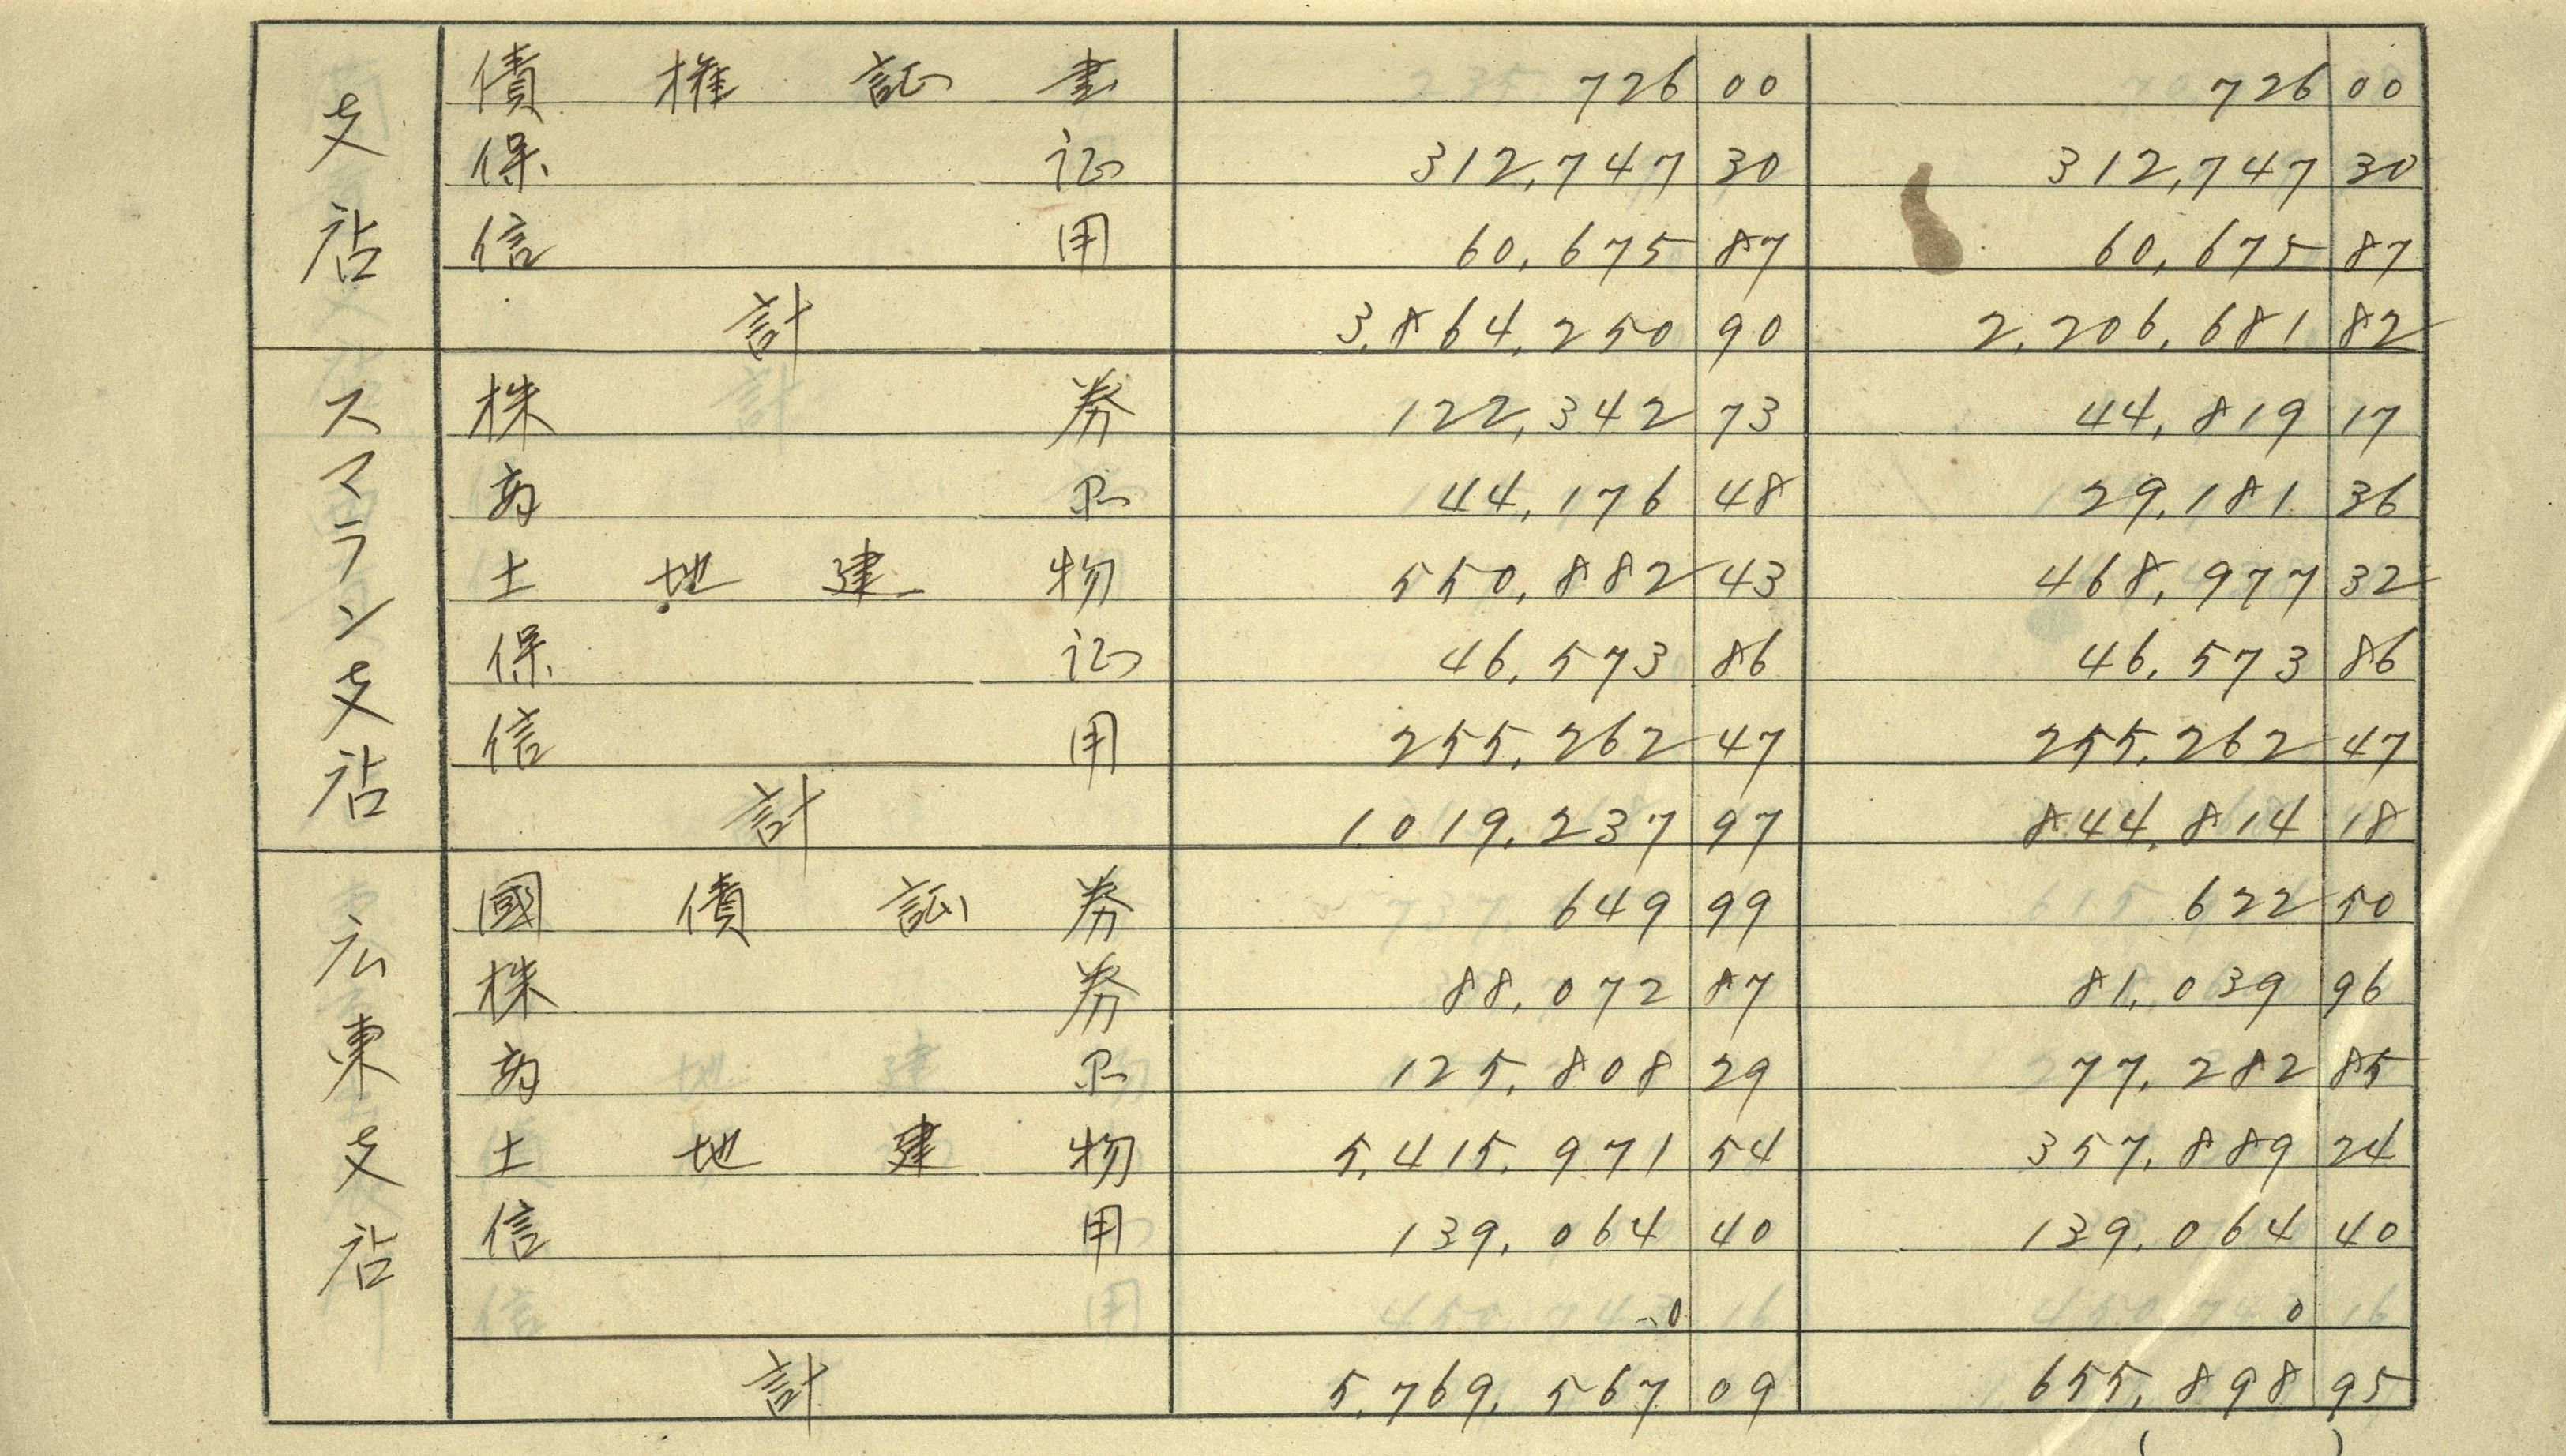 支店
債権証書 726 00 726 00
保証 312,747 30 312,747 30
信用 60,675 87 60,675 87
計 3,864,250 90 2,206,681 82
スマラン支店
株券 122,342 73 44,819 17
商品 44,176 48 29,181 36
土地建物 550,882 43 468,977 32
保証 46,573 86 46,573 86
信用 255,262 47 255,262 47
計 1,019,237 97 844,814 18
広東支店
國債証券 649 99 622 50
株券 88,072 87 81,039 96
商品 125,808 29 77,282 85
土地建物 5,415,971 54 357,889 24
信用 139,064 40 139,064 40
0 0
計 5,769,567 09 655,898 95
( )